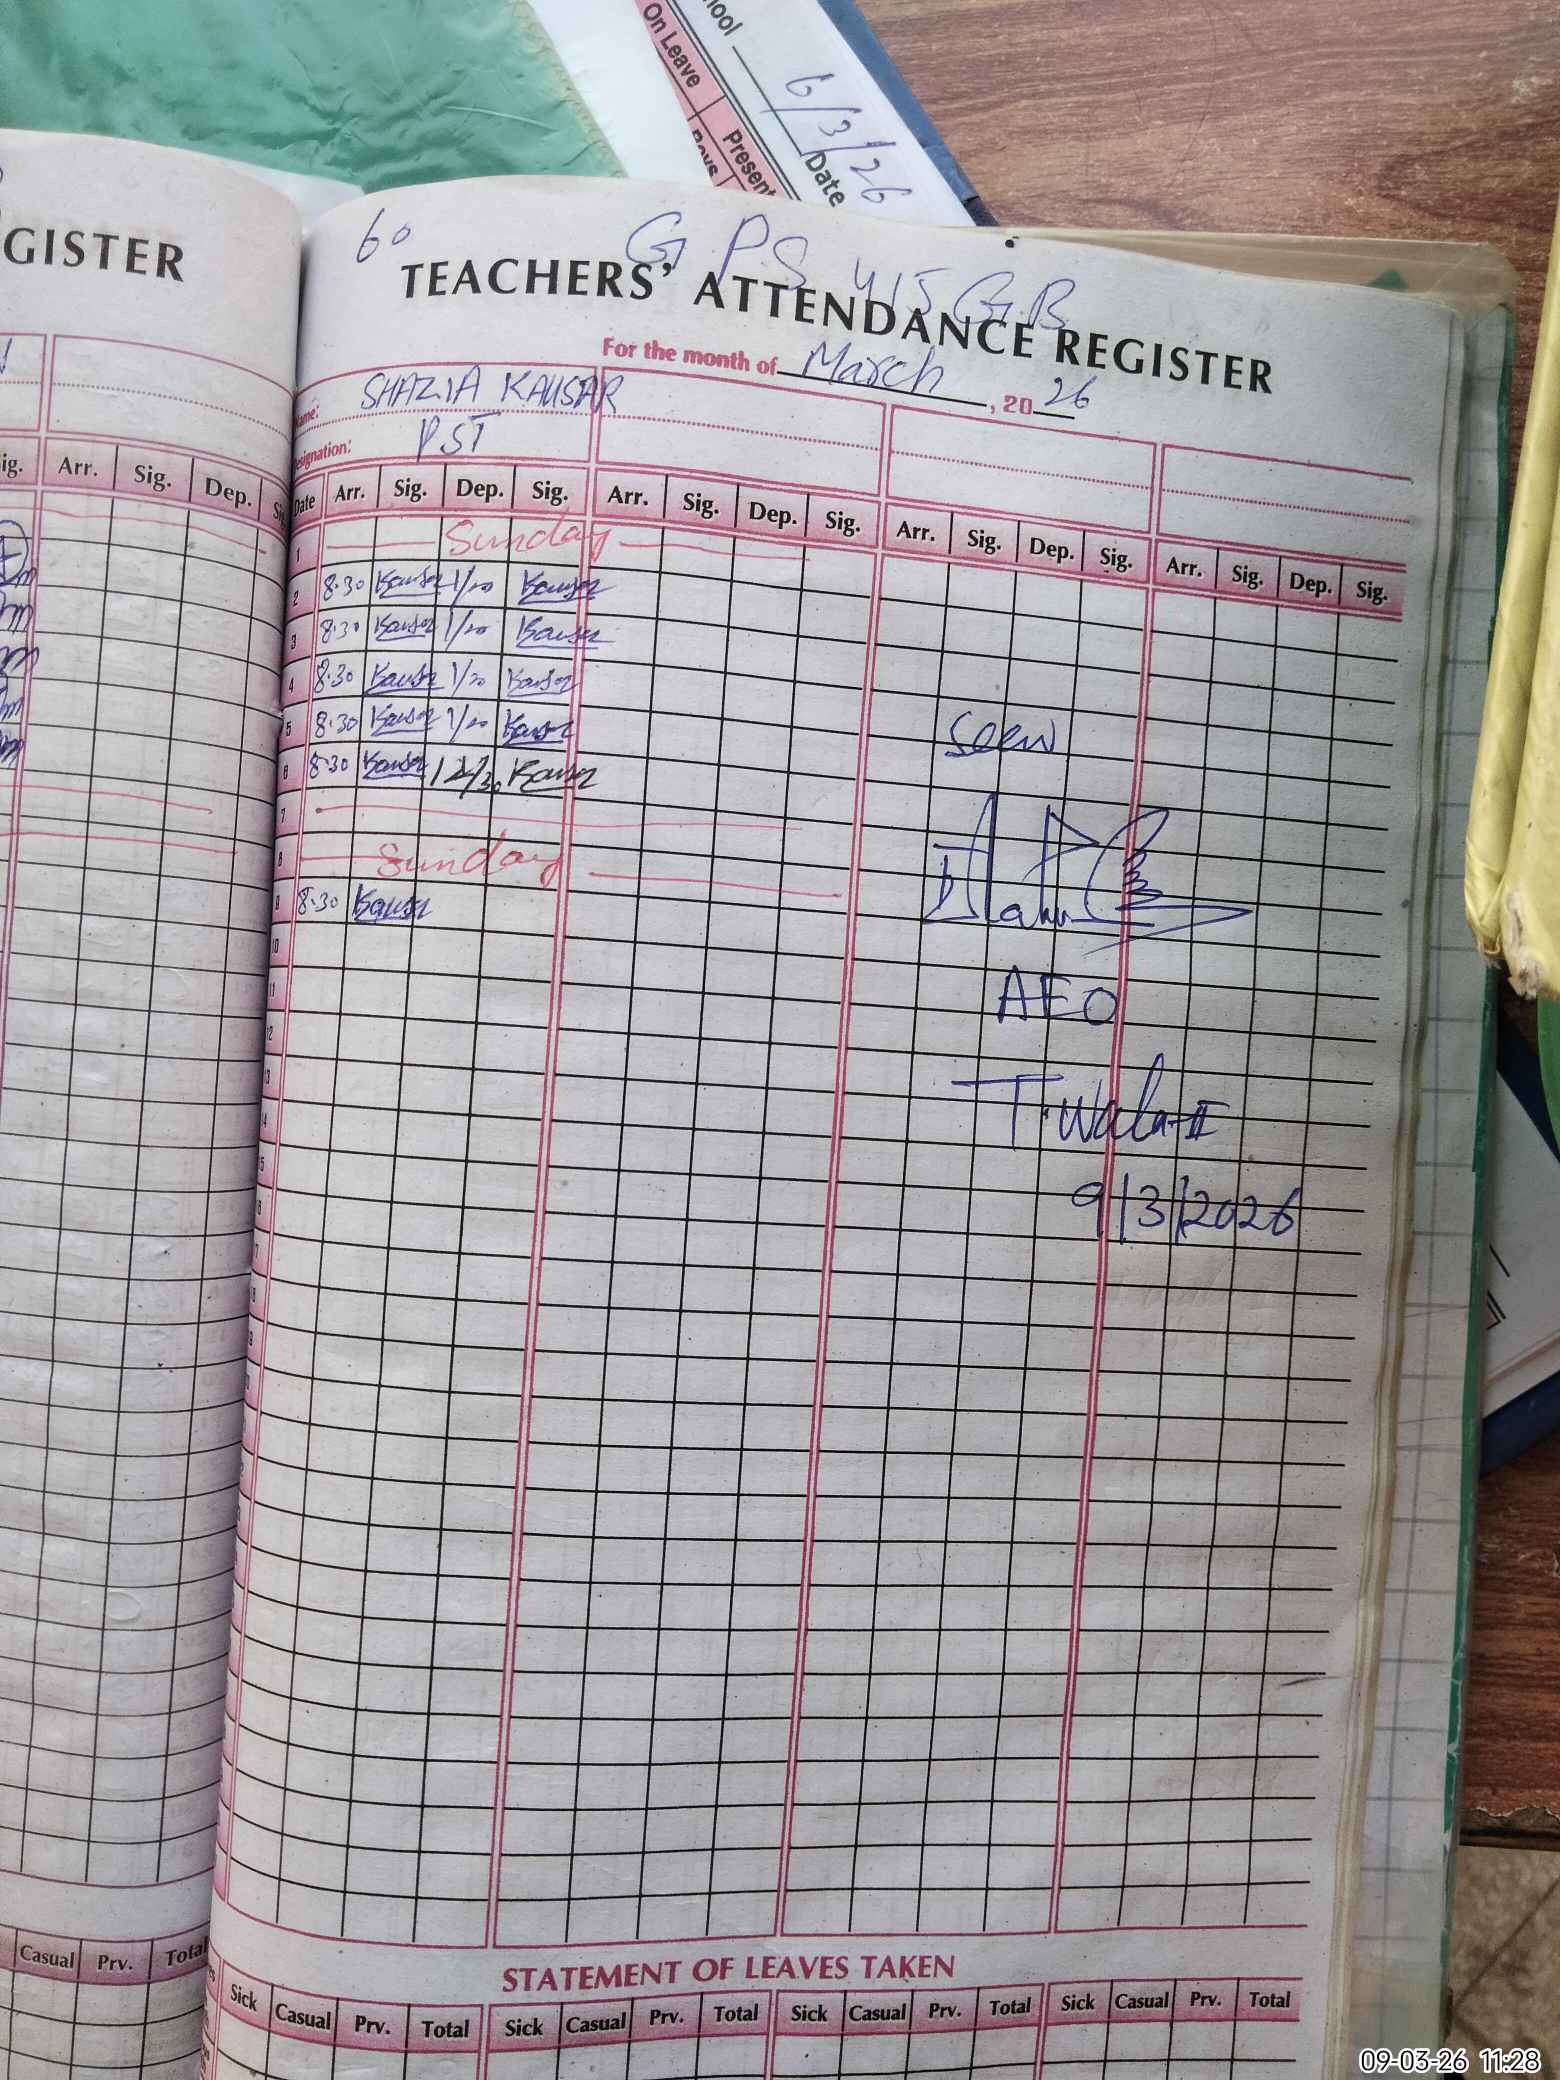 On Leave
Present
Boys
6/3/26
Date
GISTER
60
G P S 415 G.B
TEACHERS' ATTENDANCE REGISTER
For the month of March, 20 26
Name: SHAZIA KAUSAR
Designation: PST
Sig. Arr. Sig. Dep.
Date Arr. Sig. Dep. Sig. Arr. Sig. Dep. Sig. Arr. Sig. Dep. Sig. Arr. Sig. Dep. Sig.
1 Sunday
2 8.30 Kausar 1/20 Kausar
3 8.30 Kausar 1/20 Kausar
4 8.30 Kausar 1/20 Kausar
5 8.30 Kausar 1/20 Kausar
6 8.30 Kausar 12/30 Kausar
7
8 Sunday
9 8.30 Kausar
10
11
12
13
14
15
Seen
AEO
T.Wala-II
9/3/2026
Casual Prv. Total
STATEMENT OF LEAVES TAKEN
Sick Casual Prv. Total Sick Casual Prv. Total Sick Casual Prv. Total Sick Casual Prv. Total
09-03-26 11:28